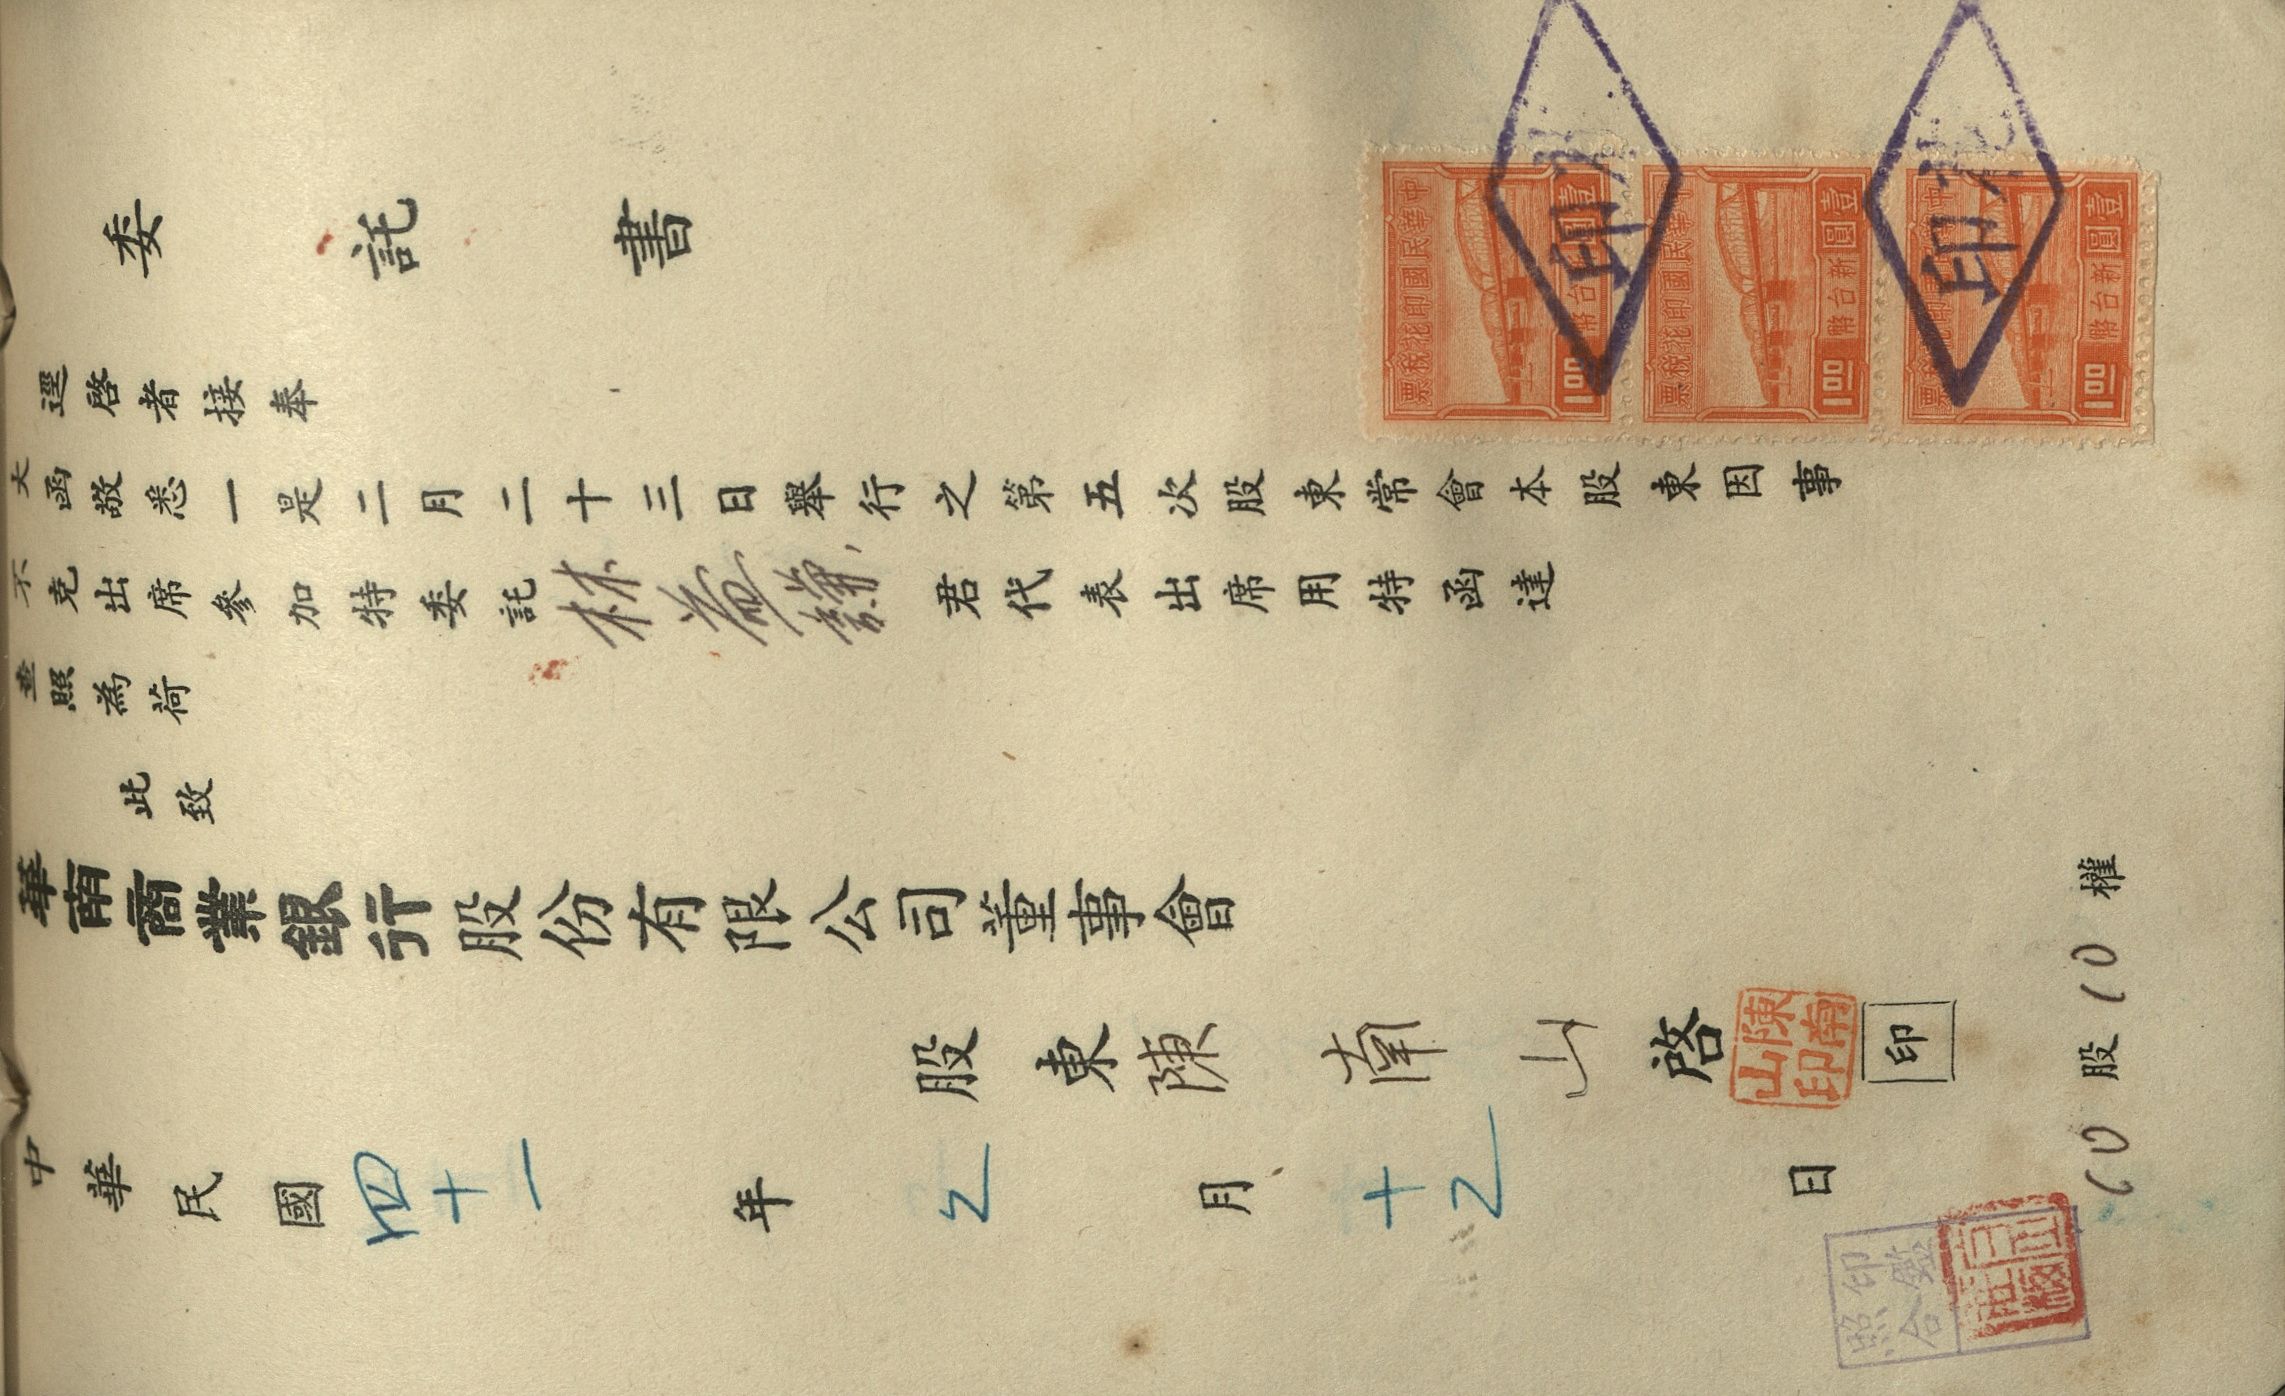 委託書
逕啓者接奉
大函敬悉一是二月二十三日舉行之第五次股東常會本股東因事
不克出席參加特委託林 君代表出席用特函達
垂照為荷
此致
華南商業銀行股份有限公司董事會
股東陳南山啓
陳南山印
印
中華民國四十一年2月十2日
10股10權
中華民國印花稅票
壹圓新台幣
1.00
中華民國印花稅票
壹圓新台幣
1.00
中華民國印花稅票
壹圓新台幣
1.00
印花
印花
印鑑照合